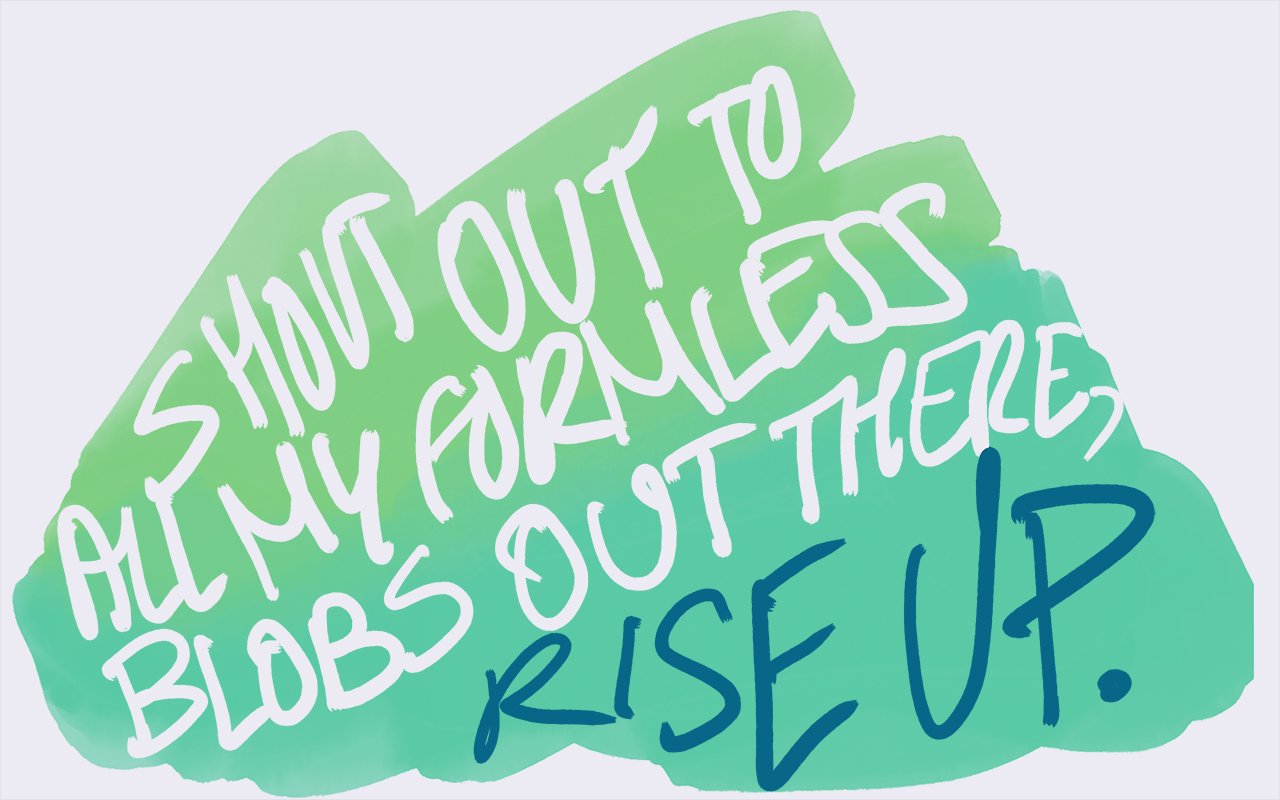 SHOUT OUT TO
ALL MY FORMLESS
BLOBS OUT THERE,
RISE UP.